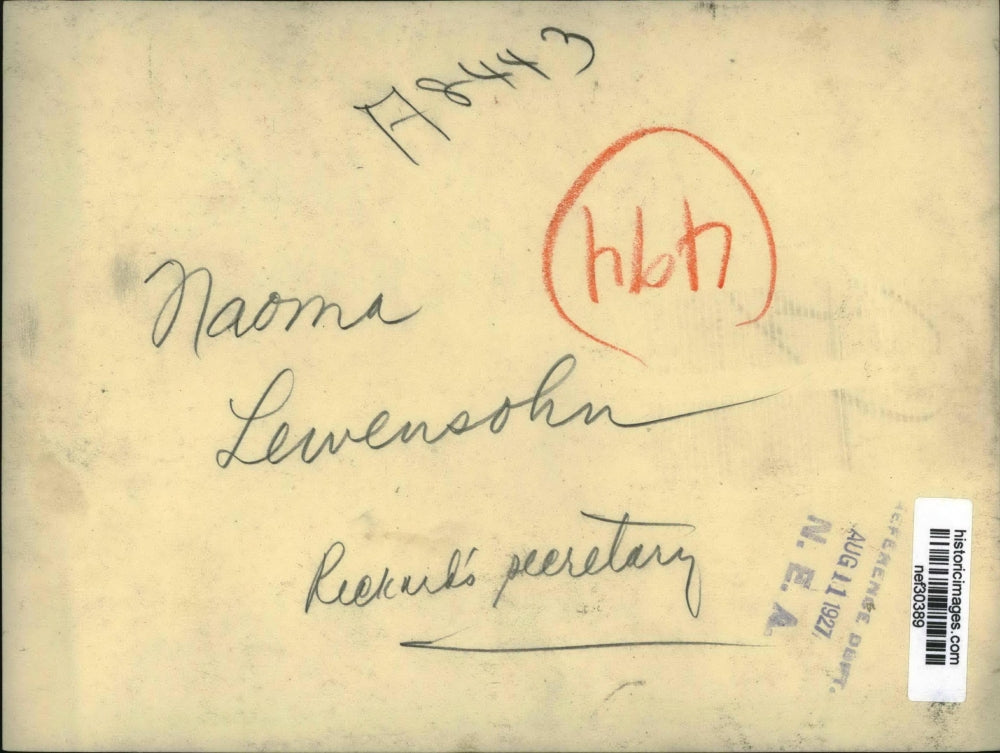 8443
494
Naoma
Lewensohn
Rickard's secretary
REFERENCE DEPT.
AUG 11 1927
N. E. A.
historicimages.com
nef30389